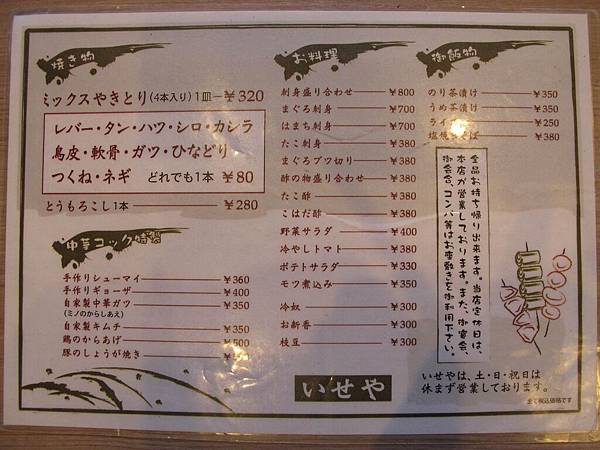 焼き物
ミックスやきとり(4本入り)1皿 ¥320
レバー・タン・ハツ・シロ・カシラ
鳥皮・軟骨・ガツ・ひなどり
つくね・ネギ どれでも1本 ¥80
とうもろこし1本 ¥280
中華コック特製
手作りシューマイ ¥360
手作りギョーザ ¥400
自家製中華ガツ ¥350
(ミノのからしあえ)
自家製キムチ ¥350
鶏のからあげ ¥500
豚のしょうが焼き ¥350
お料理
刺身盛り合わせ ¥800
まぐろ刺身 ¥700
はまち刺身 ¥700
たこ刺身 ¥380
まぐろブツ切り ¥380
酢の物盛り合わせ ¥380
たこ酢 ¥380
こはだ酢 ¥380
野菜サラダ ¥400
冷やしトマト ¥380
ポテトサラダ ¥330
モツ煮込み ¥350
冷奴 ¥300
お新香 ¥300
枝豆 ¥300
いせや
御飯物
のり茶漬け ¥350
うめ茶漬け ¥350
ライス ¥250
塩焼そば ¥380
全品お持ち帰り出来ます。当店定休日は、
本店が営業しております。また、御宴会、
御会合、コンパ等はお座敷を御利用下さい。
いせやは、土・日・祝日は
休まず営業しております。
全て税込価格です